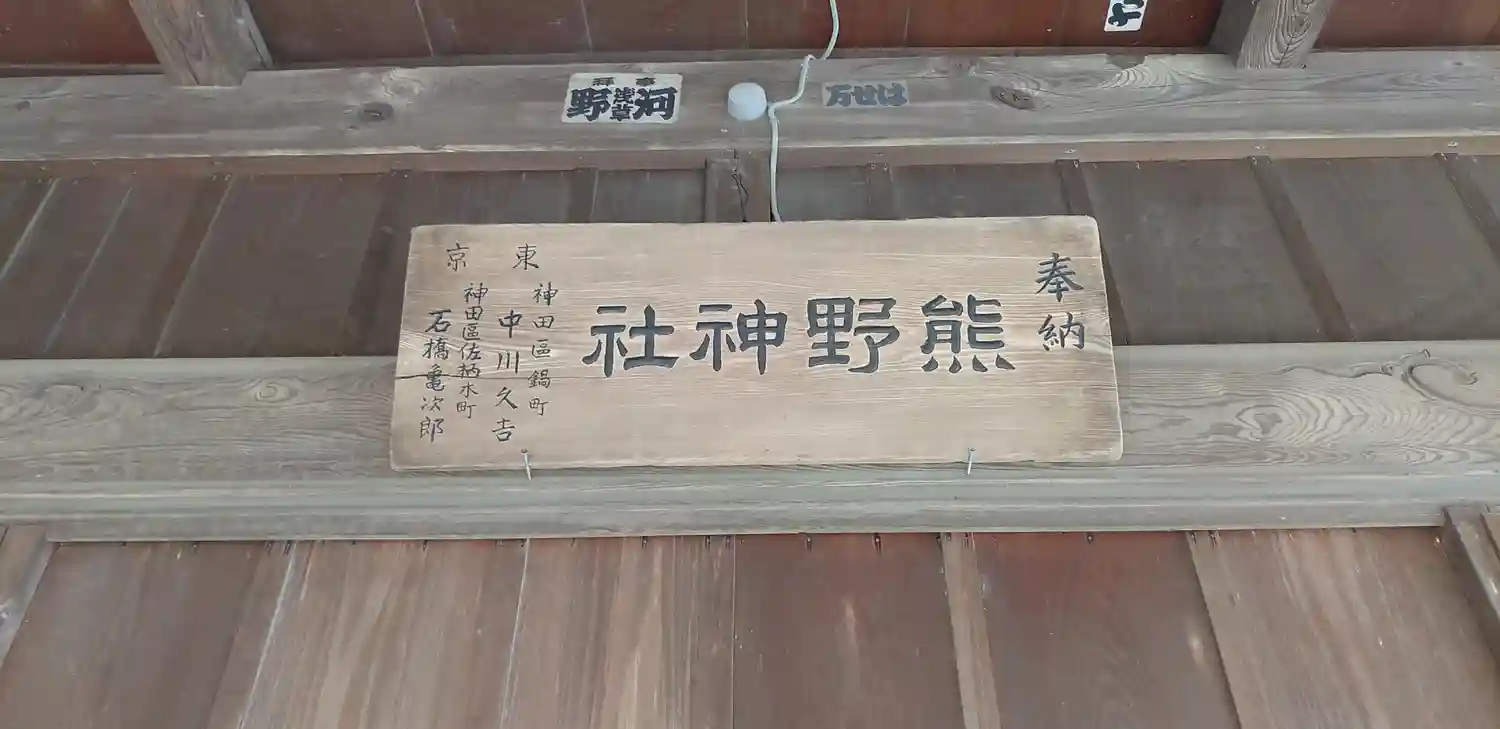 奉納
熊野神社
東京
神田區鍋町
中川久吉
神田區佐柄木町
石橋亀次郎
奉拜
河野
浅草
万せは